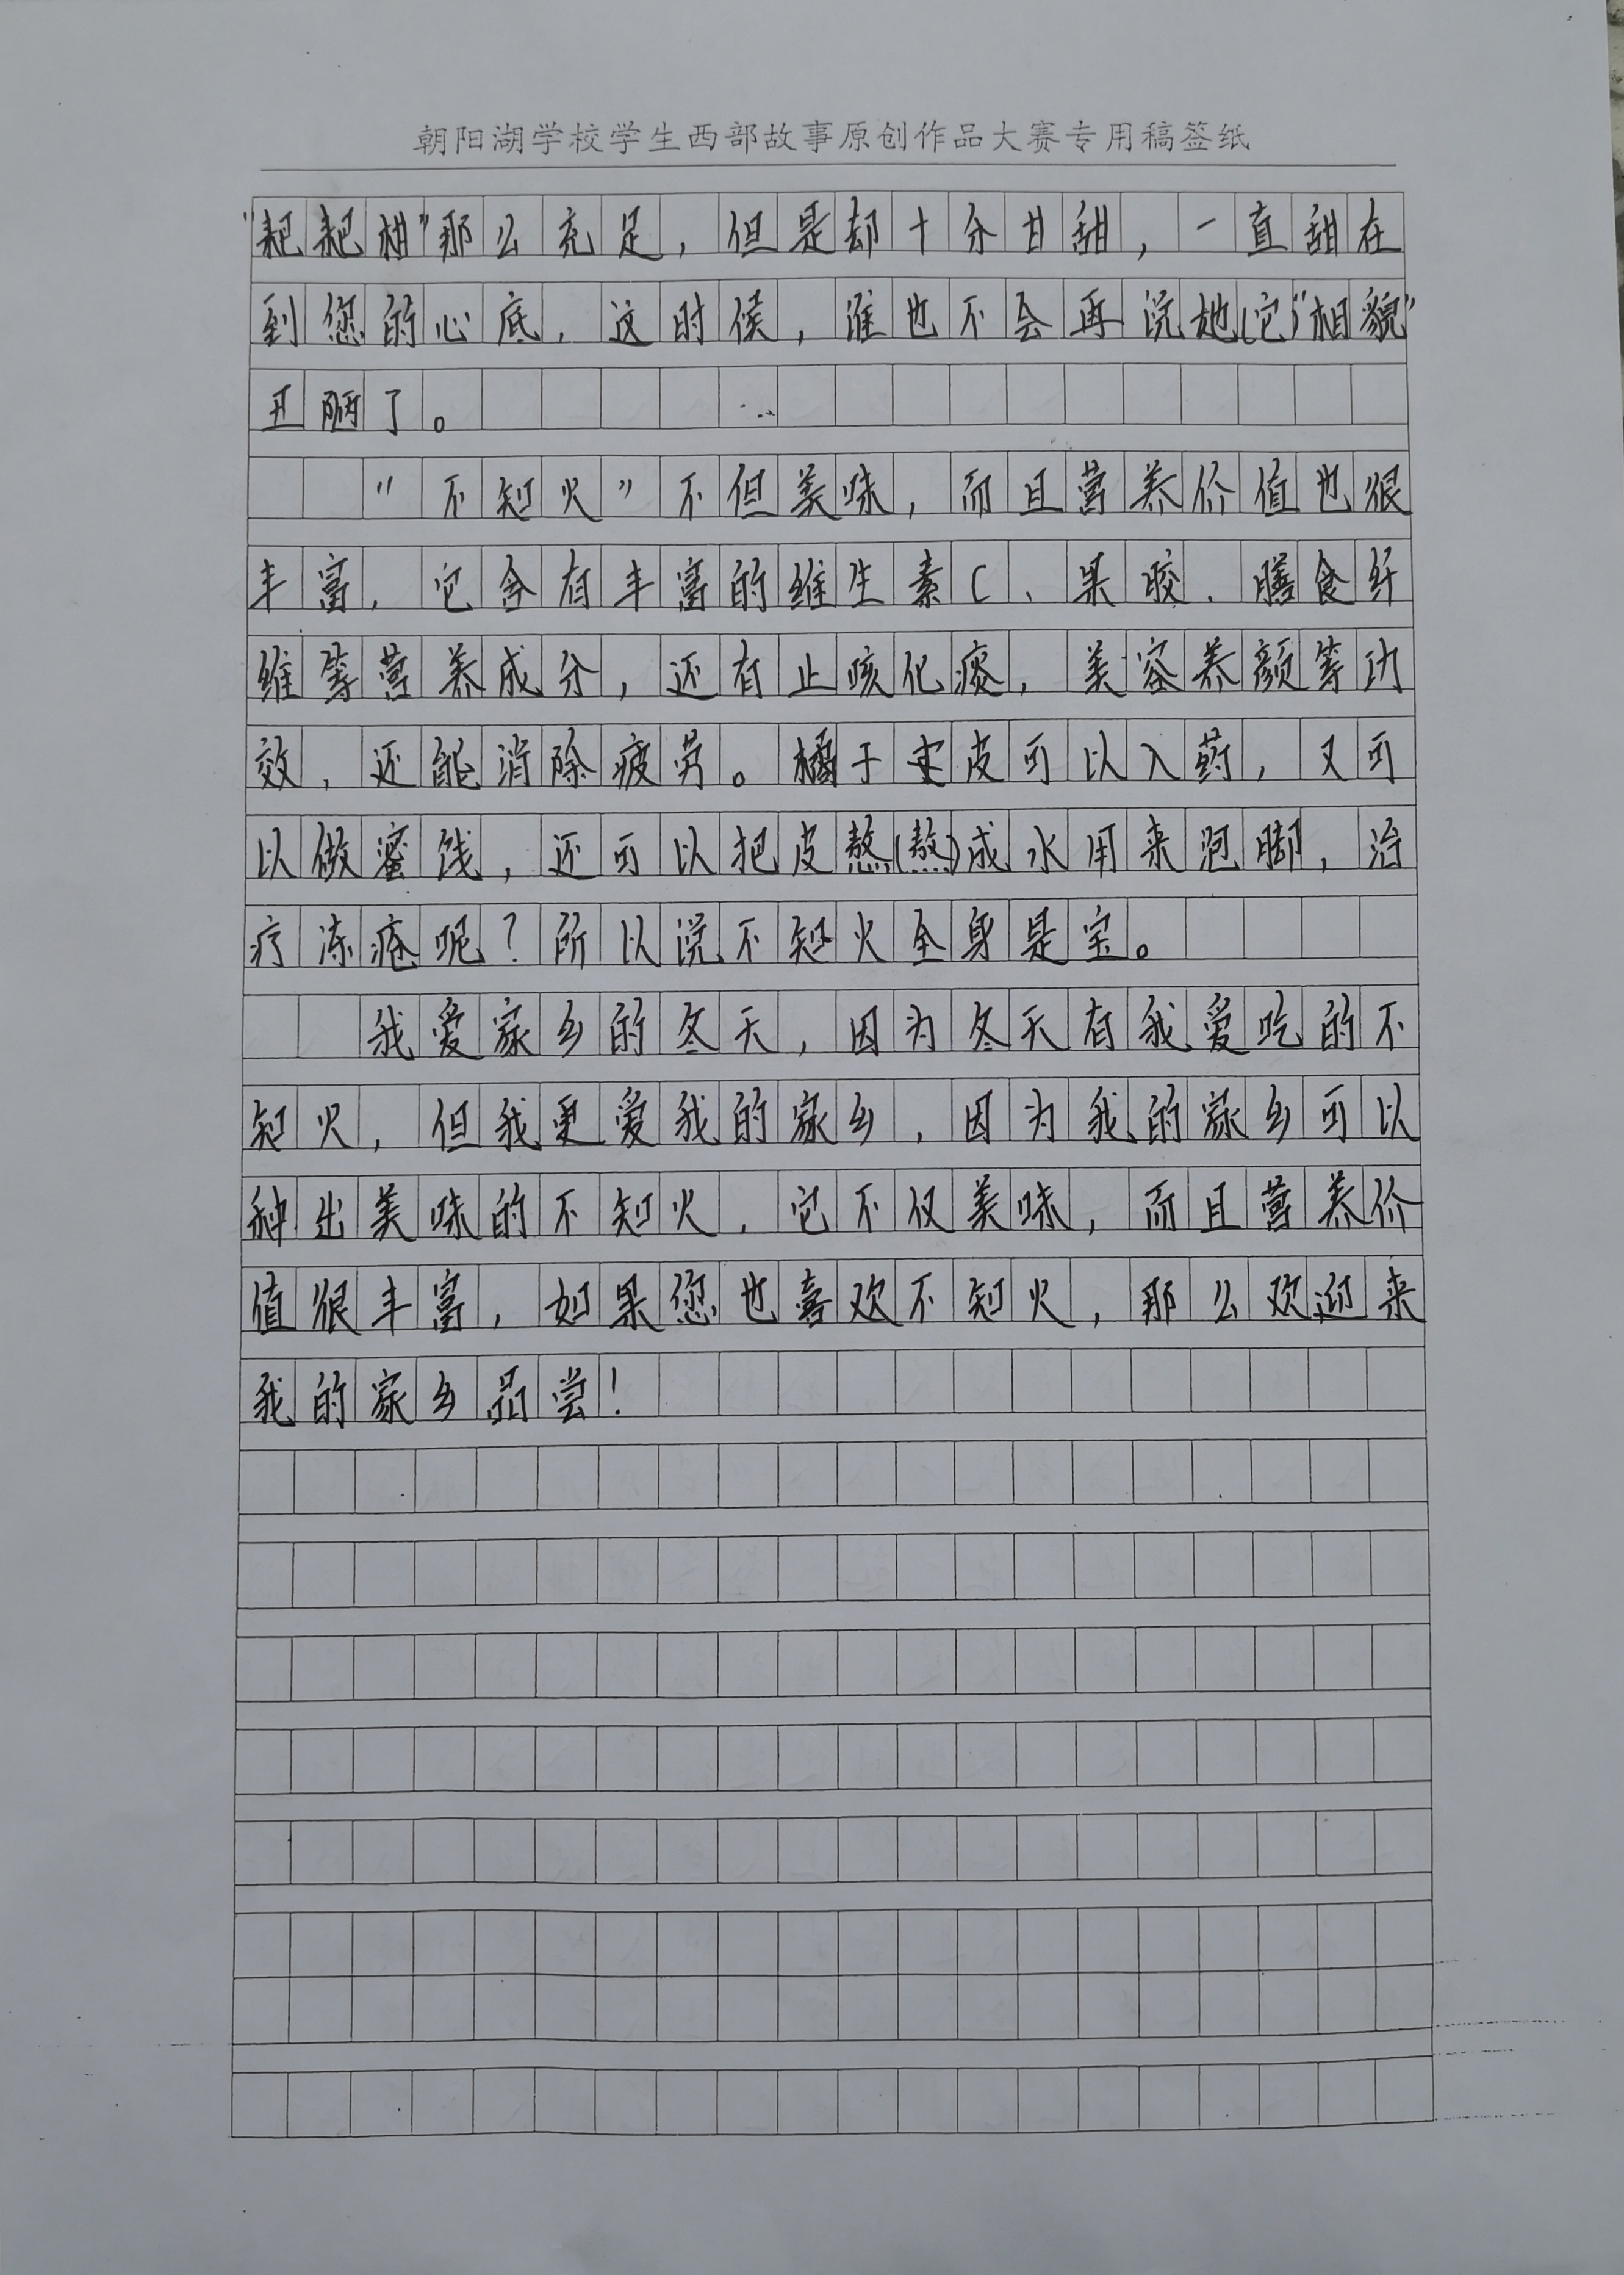 朝阳湖学校学生西部故事原创作品大赛专用稿签纸
"耙耙柑"那么充足，但是却十分甘甜，一直甜在
到您的心底，这时候，谁也不会再说她(它)"相貌"
丑陋了。
"不知火"不但美味，而且营养价值也很
丰富，它含有丰富的维生素C、果胶、膳食纤
维等营养成分，还有止咳化痰，美容养颜等功
效，还能消除疲劳。橘子皮可以入药，又可
以做蜜饯，还可以把皮熬(熬)成水用来泡脚，治
疗冻疮呢？所以说不知火全身是宝。
我爱家乡的冬天，因为冬天有我爱吃的不
知火，但我更爱我的家乡，因为我的家乡可以
种出美味的不知火，它不仅美味，而且营养价
值很丰富，如果您也喜欢不知火，那么欢迎来
我的家乡品尝！